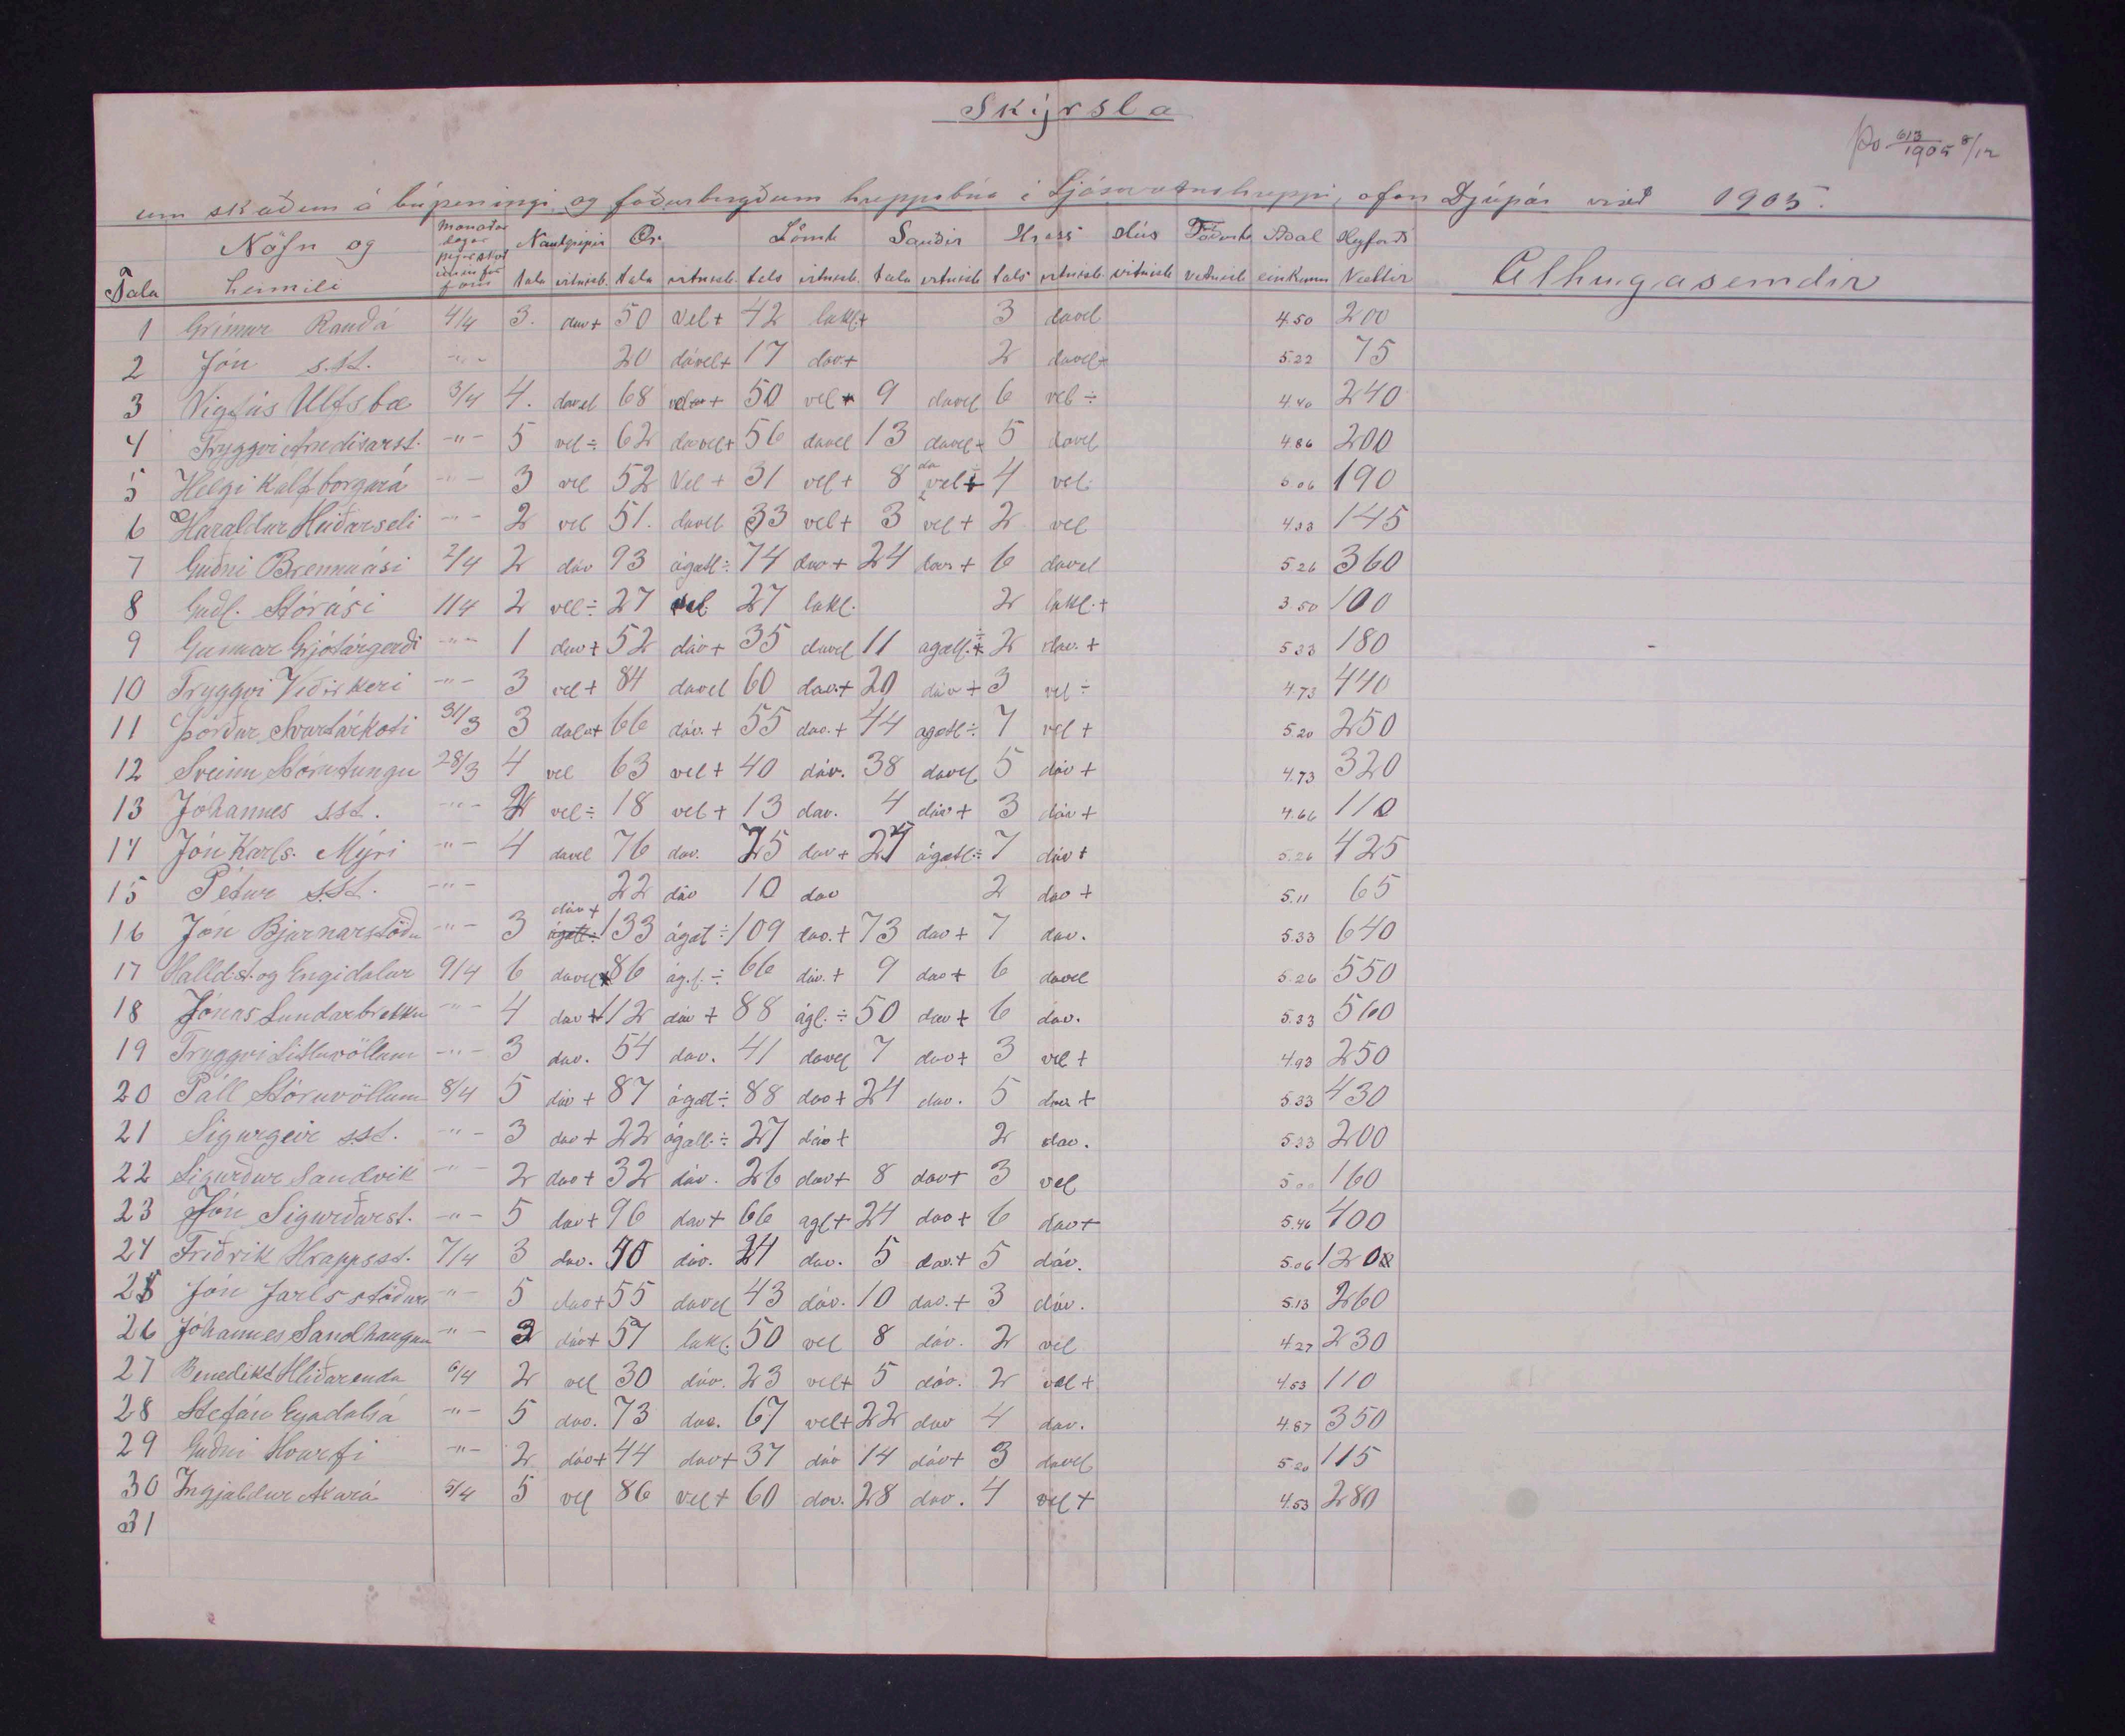 Skýrsla
þv 613/1905 8/12
um skoðun á búpeningi og fóðurbyrgðum hreppsbúa í Ljósavatnshreppi, ofan Djúpár vorið 1905.
Nöfn og Nautgripir Ær Lömb Sauðir Hross Hús Aðal Heyforði
Tala heimili tala vitnisb. tala vitnisb. tala vitnisb. tala vitnisb. tala vitnisb. vitnisb. vitnisb. einkunn Vættir Athugasemdir
1 Grímur Rauðá 4/4 3. dav+ 50 Vel+ 42 lakl+ 3 davel 4.50 200
2 Jón s.st. -"- 20 dável+ 17 dav+ 2 davel+ 5.22 75
3 Vigfús Ulfsbæ 3/4 4. davel 68 + 50 vel+ 9 davel 6 vel÷ 4.40 240
4 Tryggvi Arndísarst. -"- 5 vel÷ 62 davel+ 56 davel 13 davel+ 5 davel 4.86 200
5 Helgi Kálfborgará -"- 3 vel 52 Vel+ 31 vel+ 8 davel÷ 4 vel 190
6 Haraldur Heiðarseli -"- 2 vel 51. davel 33 vel+ 3 vel+ 2 vel 4.33 145
7 Guðni Brennuási 2/4 2 dáv 93 ágætl÷ 74 dav+ 24 dav+ 6 davel 5.26 360
8 Guðl. Stórási 1/4 2 vel÷ 27 vel 27 lakl. 2 lakl.+ 3.50 100
9 Gunnar Grjótárgerði -"- 1 dav+ 52 dáv+ 35 davel 11 agætl.÷ 2 dav.+ 5.33 180
10 Tryggvi Víðirkeri -"- 3 vel+ 84 davel 60 dav.+ 20 dáv+ 3 vel÷ 4.73 440
11 Þórður Svartárkoti 31/3 3 66 dáv.+ 55 dav.+ 44 agætl÷ 7 vel+ 5.20 250
12 Sveinn Stórutungu 28/3 4 vel 63 vel+ 40 dáv. 38 davel 5 dáv+ 4.73 320
13 Jóhannes sst. -"- vel÷ 18 vel+ 13 dav. 4 dáv+ 3 dáv+ 4.66 110
14 Jón Karls. Mýri -"- 4 davel 76 dav. 75 dav+ 27 ágætl÷ 7 dáv+ 5.26 425
15 Pétur s.st. -"- 22 dáv 10 dav 2 dav+ 5.11 65
dáv+
16 Jón Bjarnarstöðu -"- 3 ágætl÷ 133 ágæt÷ 109 dav.+ 73 dav+ 7 dav. 5.33 640
17 Halldst. og Engidalur 9/4 6 davel 86 ág.l.÷ 66 dáv.+ 9 dav+ 6 davel 5.26 550
18 Jónas Lundarbrekku -"- 4 dav+ 112 dáv+ 88 ágl.÷ 50 dav+ 6 dáv. 5.33 560
19 Tryggvi Litluvöllum -"- 3 dav. 54 dav. 41 davel 7 dav+ 3 vel+ 4.93 250
20 Páll Stóruvöllum 8/4 5 dáv+ 87 ágæt÷ 88 dav+ 24 dav. 5 dav+ 5.33 430
21 Sigurgeir s.st. -"- 3 dav+ 22 ágætl÷ 27 dáv+ 2 dav. 5.33 200
22 Sigurður Sandvik -"- 2 dav+ 32 dáv. 26 dav+ 8 dav+ 3 vel 5.00 160
23 Jón Sigurðarst. -"- 5 dav+ 96 dav+ 66 agl+ 24 dav+ 6 dav+ 5.46 400
24 Friðrik Hrappsst. 7/4 3 dav. 40 dáv. 24 dav. 5 dav.+ 5 dáv. 5.06 120
25 Jón Jarlsstöðum -"- 5 dav+ 55 davel 43 dáv. 10 dav.+ 3 dáv. 5.13 260
26 Jóhannes Sandhaugum -"- 3 dáv+ 57 lakl. 50 vel 8 dáv. 2 vel 4.27 230
27 Benedikt Hlíðarenda 6/4 2 vel 30 dáv. 23 vel+ 5 dáv. 2 vel+ 4.53 110
28 Stefán Eyadalsá -"- 5 dav. 73 dav. 67 vel+ 22 dav 4 dav. 4.87 350
29 Guðni Hvarfi -"- 2 dáv+ 44 dav+ 37 dáv 14 dáv+ 3 davel 5.20 115
30 Ingjaldur 5/4 5 vel 86 vel+ 60 dav. 28 dav. 4 vel+ 4.53 280
31